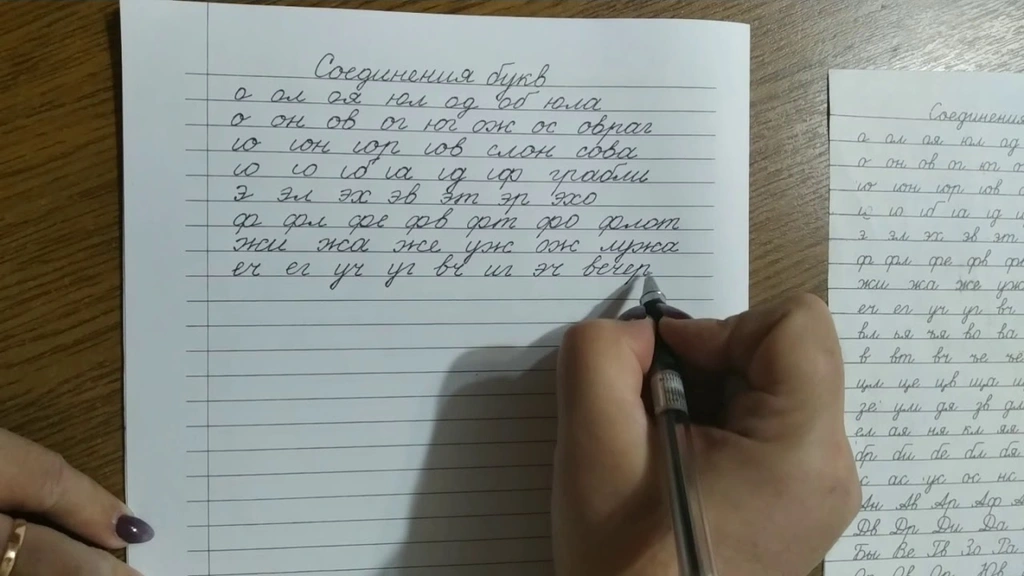 Соединения букв
о ол оя юл од об юла
о он ов ог юг ож ос овраг
ю юн юр юв слон сова
ю ю юб юа юд юф грабли
э эл эх эв эт эр эхо
ф фл фе фв фт фо флот
жи жа же уж ож лужа
еч ег уч уг вч иг эч вечер
Соединения
о ол оя юл од
о он ов ог юг о
ю юн юр юв с
ю ю юб юа юд ю
э эл эх эв эт
ф фл фе фв ф
жи жа же уж
еч ег уч уг вч
вл ья ъя во ва
в вт вч ье ъе
цм це цв ща щ
зе ум дя зв дл
ел ая ня кл яя
ф би бе бл бя
с ас ус ос нс
Ан Ав Ар Аф А
Дв Др Ди Да
Бы Ве Тв Зо Га